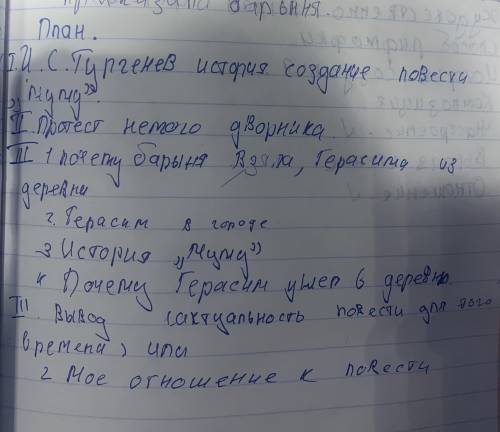 барыня.
План.
I. И. С. Тургенев история создание повести
„Муму".
II. Протест немого дворника
III 1 почему барыня взяла, Герасима из
деревни
2. Герасим в городе
3 История „Муму"
4 Почему Герасим ушел в деревню.
III. Вывод (актуальность повести для того
времени) или
2 Мое отношение к повести